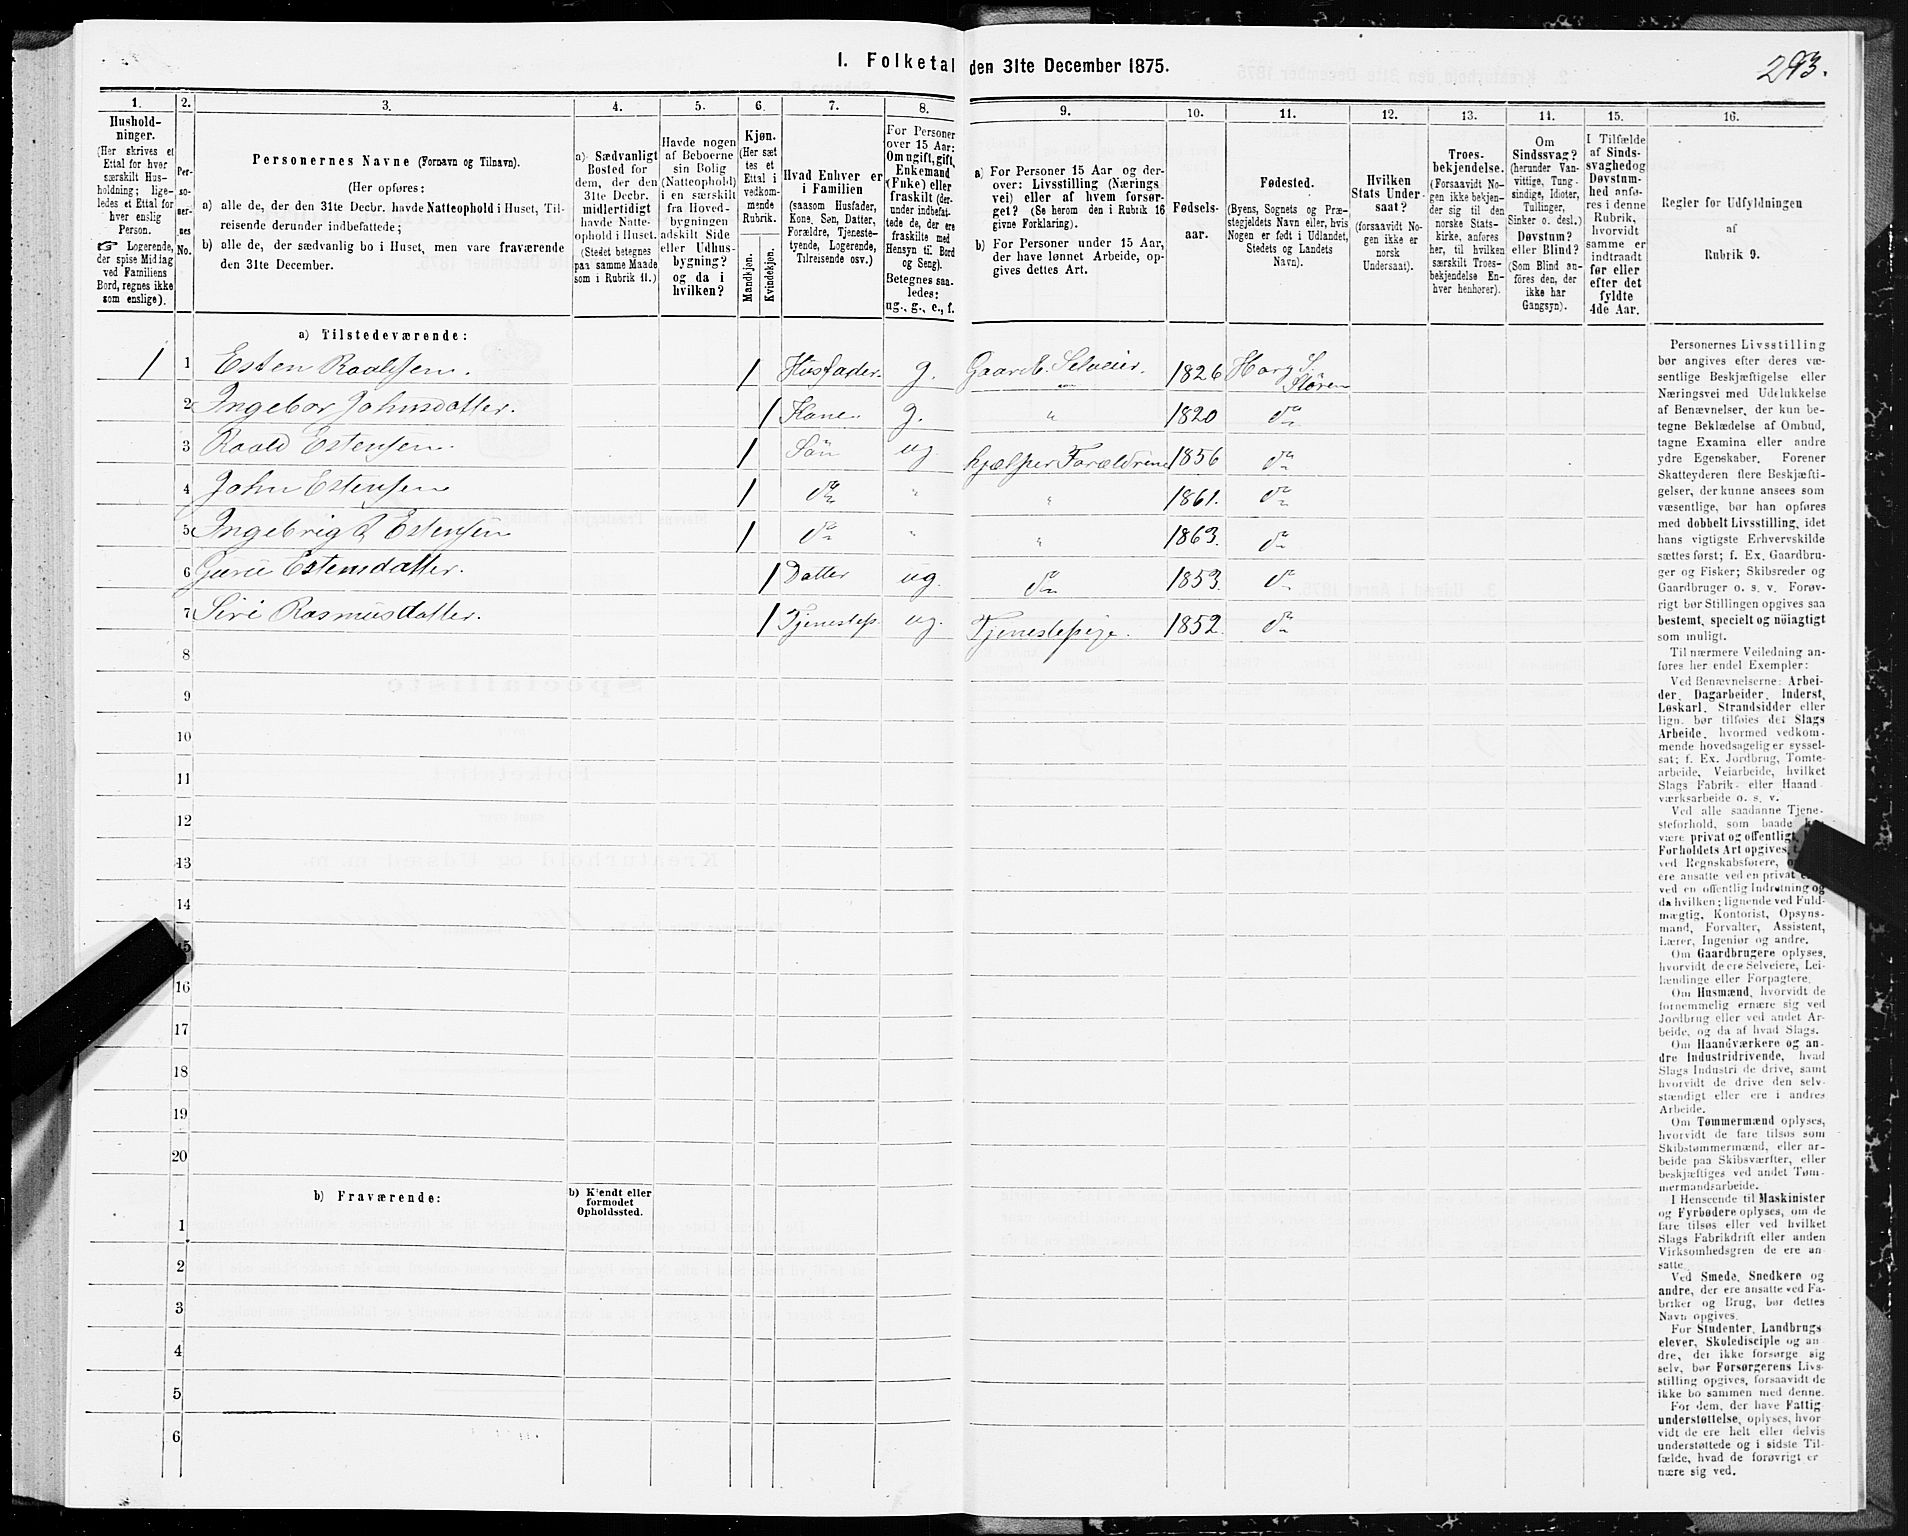 293.
1. Folketal den 31te December 1875.
1. 2. 3. 4. 5. 6. 7. 8. 9. 10. 11. 12. 13. 14. 15. 16.
Hushold-
ninger.
(Her skrives et
Ettal for hver
særskilt Hus-
holdning; lige-
ledes et Ettal for
hver enslig
Person.
☞ Logerende,
der spise Middag
ved Familiens
Bord, regnes ikke
som enslige).
Per-
so-
ner-
nes
No.
Personernes Navne (Fornavn og Tilnavn).
(Her opføres:
a) alle de, der den 31te Decbr. havde Natteophold i Huset, Til-
reisende derunder indbefattede;
b) alle de, der sædvanlig bo i Huset, men vare fraværende
den 31te December.
a) Sædvanligt
Bosted for
dem, der den
31te Decbr.
midlertidigt
havde Natte-
ophold i Huset.
(Stedet betegnes
paa samme Maade
som i Rubrik 11.)
Havde nogen
af Beboerne
sin Bolig
(Natteophold)
i en særskilt
fra Hoved-
bygningen
adskilt Side
eller Udhus-
bygning?
og da i
hvilken?
Kjøn.
(Her sæt
tes et
Ettal i
vedkom-
mende
Rubrik.
Mandkjøn.
Kvindekjøn.
Hvad Enhver er
i Familien
(saasom Husfader,
Kone, Søn, Datter,
Forældre, Tjeneste-
tyende, Logerende,
Tilreisende osv.)
For Personer
over 15 Aar:
Om ugift, gift,
Enkemand
(Enke) eller
fraskilt (der-
under indbefat-
tede de, der ere
fraskilte med
Hensyn til Bord
og Seng).
Betegnes saa-
ledes:
ug., g., e., f.
a) For Personer 15 Aar og der-
over: Livsstilling (Nærings
vei) eller af hvem forsør-
get? (Se herom den i Rubrik 16
givne Forklaring).
b) For Personer under 15 Aar,
der have lønnet Arbeide, op-
gives dettes Art.
Fødsels-
aar.
Fødested.
(Byens, Sognets og Præ-
stegjeldets Navn eller, hvis
Nogen er født i Udlandet,
Stedets og Landets
Navn).
Hvilken
Stats Under-
saat?
(forsaavidt No-
gen ikke er
norsk
Undersaat).
Troes-
bekjendelse.
(Forsaavidt No-
gen ikke bekjen-
der sig til den
norske Stats-
kirke, anføres
her, til hvilken
særskilt Troes-
bekjendelse En-
hver henhører).
Om
Sindssvag?
(herunder Van-
vittige, Tung-
sindige, Idioter,
Tullinger,
Sinker o. desl.)
Døvstum?
eller Blind?
(Som Blind an-
føres den, der
ikke har
Gangsyn).
I Tilfælde
af Sinds-
svaghed og
Døvstum-
hed anfø-
res i denne
Rubrik,
hvorvidt
samme er
indtraadt
før eller
efter det
fyldte
4de Aar.
Regler for Udfyldningen
af
Rubrik 9.
a) Tilstedeværende:
1 1 Esten Roaldsen. 1 Husfader. g. Gaardb. Selveier. 1826 Horg S. Støren
2 Ingebor Johnsdatter. 1 Kone g. " 1820 do
3 Roald Estensen 1 Sön ug hjælper Forældrene 1856 do
4 John Estensen 1 do " " 1861. do
5 Ingebrigt Estensen 1 do " " 1863. do
6 Guru Estensdatter. 1 Datter ug. do 1853. do
7 Siri Rasmusdatter. 1 Tjenestep. ug. Tjenestepige. 1852. do
8
9
10
11
12
13
14
15
16
17
18
19
20
b) Fraværende: b) Kjendt eller
formodet
Opholdssted.
1
2
3
4
5
6
Personernes Livsstilling
bør angives efter deres væ-
sentlige Beskjæftigelse eller
Næringsvei med Udelukkelse
af Benævnelser, der kun be-
tegne Beklædelse af Ombud,
tagne Examina eller andre
ydre Egenskaber. Forener
Skatteyderen flere Beskjæfti-
gelser, der kunne ansees som
væsentlige, bør han opføres
med dobbelt Livsstilling, idet
hans vigtigste Erhvervskilde
sættes først; f. Ex. Gaardbru-
ger og Fisker; Skibsreder og
Gaardbruger o. s. v. Forøv-
rigt bør Stillingen opgives saa
bestemt, specielt og nöiagtigt
som muligt.
Til nærmere Veiledning an-
føres her endel Exempler:
Ved Benævnelserne: Arbei-
der, Dagarbeider, Inderst,
Løskarl, Strandsidder eller
lign. bør tilføies det Slags
Arbeide, hvormed vedkom-
mende hovedsagelig er syssel-
sat; f. Ex. Jordbrug, Tomte-
arbeide, Veiarbeide, hvilket
Slags Fabrik- eller Haand-
værksarbeide o. s. v.
Ved alle saadanne Tjene-
steforhold, som baade
være privat og offentligt,
Forholdets Art opgives,
ved Regnskabsførere,
ere ansatte ved en privat
ved en offentlig Indretning og
da hvilken; lignende ved Fuld-
mægtig, Kontorist, Opsyns-
mand, Forvalter, Assistent,
Lærer, Ingeniør og andre.
Om Gaardbrugere oplyses,
hvorvidt de ere Selveiere, Lei-
lændinge eller Forpagtere.
Om Husmænd, hvorvidt de
fornemmelig ernære sig ved
Jordbrug eller ved andet Ar-
beide, og da af hvad Slags.
Om Haandværkere og an-
dre Industridrivende, hvad
Slags Industri de drive, samt
hvorvidt de drive den selv-
stændigt eller ere i andres
Arbeide.
Om Tømmermænd oplyses,
hvorvidt de fare tilsøs som
Skibstømmermænd, eller ar-
beide paa Skibsværfter, eller
beskjæftiges ved andet Tøm-
mermandsarbeide.
I Henseende til Maskinister
og Fyrbødere oplyses, om de
fare tilsøs eller ved hvilket
Slags Fabrikdrift eller anden
Virksomhedsgren de ere an-
satte.
Ved Smede, Snedkere og
andre, der ere ansatte ved Fa-
briker og Brug, bør dettes
Navn opgives.
For Studenter, Landbrugs-
elever, Skoledisciple og an-
dre, der ikke forsørge sig
selv, bør Forsørgerens Livs-
stilling opgives, forsaavidt de
ikke bo sammen med denne.
For dem, der have Fattig-
understøttelse, oplyses, hvor-
vidt de ere helt eller delvis
understøttede og i sidste Til-
fælde, hvad de forøvrigt er-
nære sig ved.